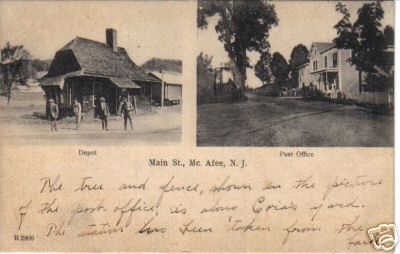 Depot
Post Office
Main St., Mc. Afee, N. J.
The tree and fence, shown in the picture
of the post office, is along Cora's yard.
The station has been taken from the
back
B 2900